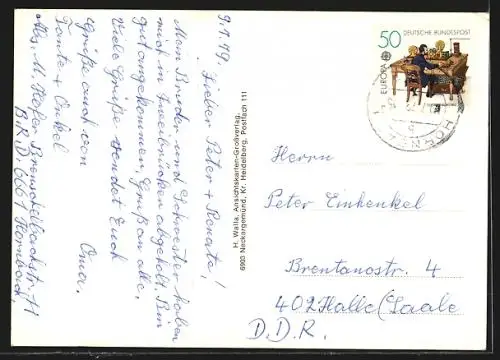 9.1.79.
Lieber Peter + Renate!
Mein Bruder und Schwester haben
mich in Zweibrücken abgeholt. Bin
gut angekommen. Gruß an alle.
Viele Grüße sendet Euch
Oma.
Grüße auch von
Tante + Onkel
Abs. M. Hefer Brenschelbachstr. 11
B.R.D. 6661 Hornbach
H. Walla, Ansichtskarten-Großverlag,
6903 Neckargemünd, Kr. Heidelberg, Postfach 111
50 DEUTSCHE BUNDESPOST
EUROPA
HORNBACH
Herrn
Peter Einhenkel
Brentanostr. 4
402 Halle (Saale
D.D.R.